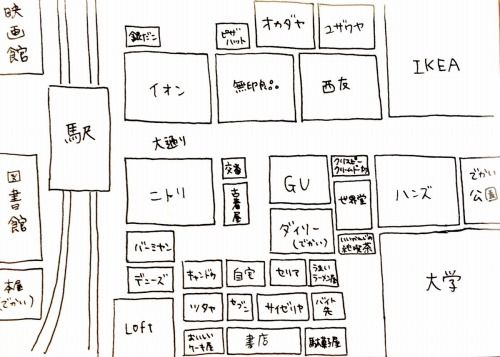 映画館
銀だこ
ピザ
ハット
オカダヤ
ユザワヤ
イオン
無印良品
西友
IKEA
駅
大通り
図書館
ニトリ
交番
古着屋
GU
クリスピー
クリームドーナツ
世界堂
ハンズ
でかい
公園
ダイソー
(でかい)
いいかんじの
純喫茶
バーミヤン
デニーズ
キャンドゥ
自宅
セリア
うまい
ラーメン屋
大学
本屋
(でかい)
Loft
ツタヤ
セブン
サイゼリヤ
バイト
先
おいしい
ケーキ屋
書店
駄菓子屋